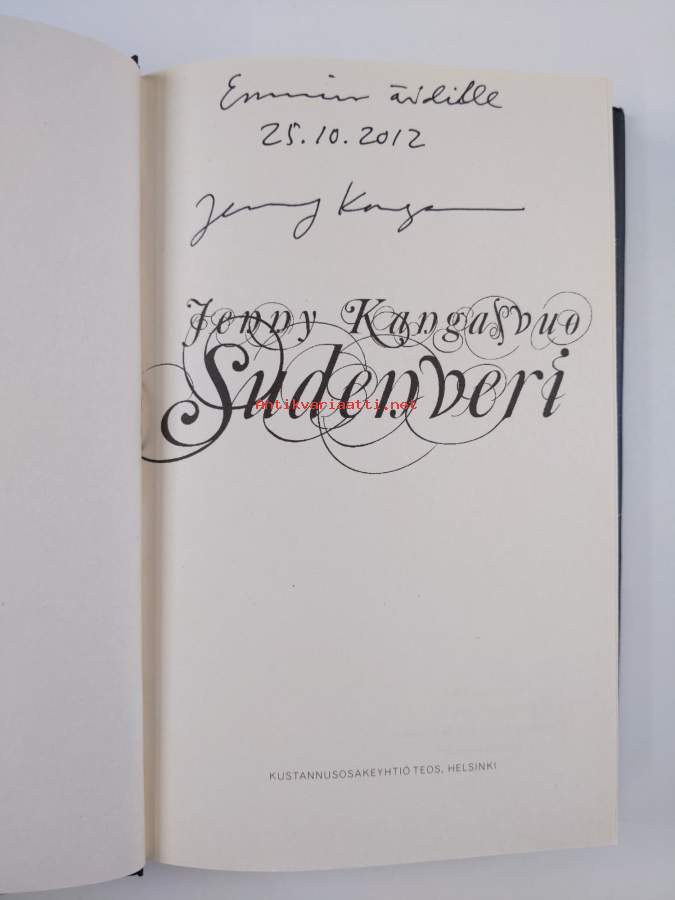 Emmin äidille
25.10.2012
Jenny Kangas
Jenny Kangasvuo
Sudenveri
Antikvariaatti.net
KUSTANNUSOSAKEYHTIÖ TEOS, HELSINKI